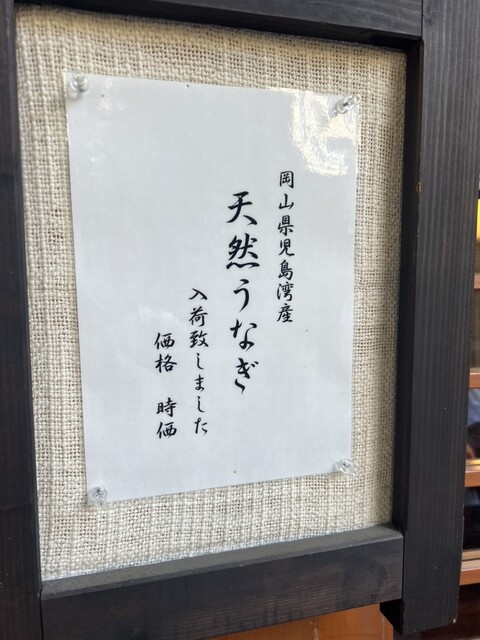 岡山県児島湾産
天然うなぎ
入荷致しました
価格　時価